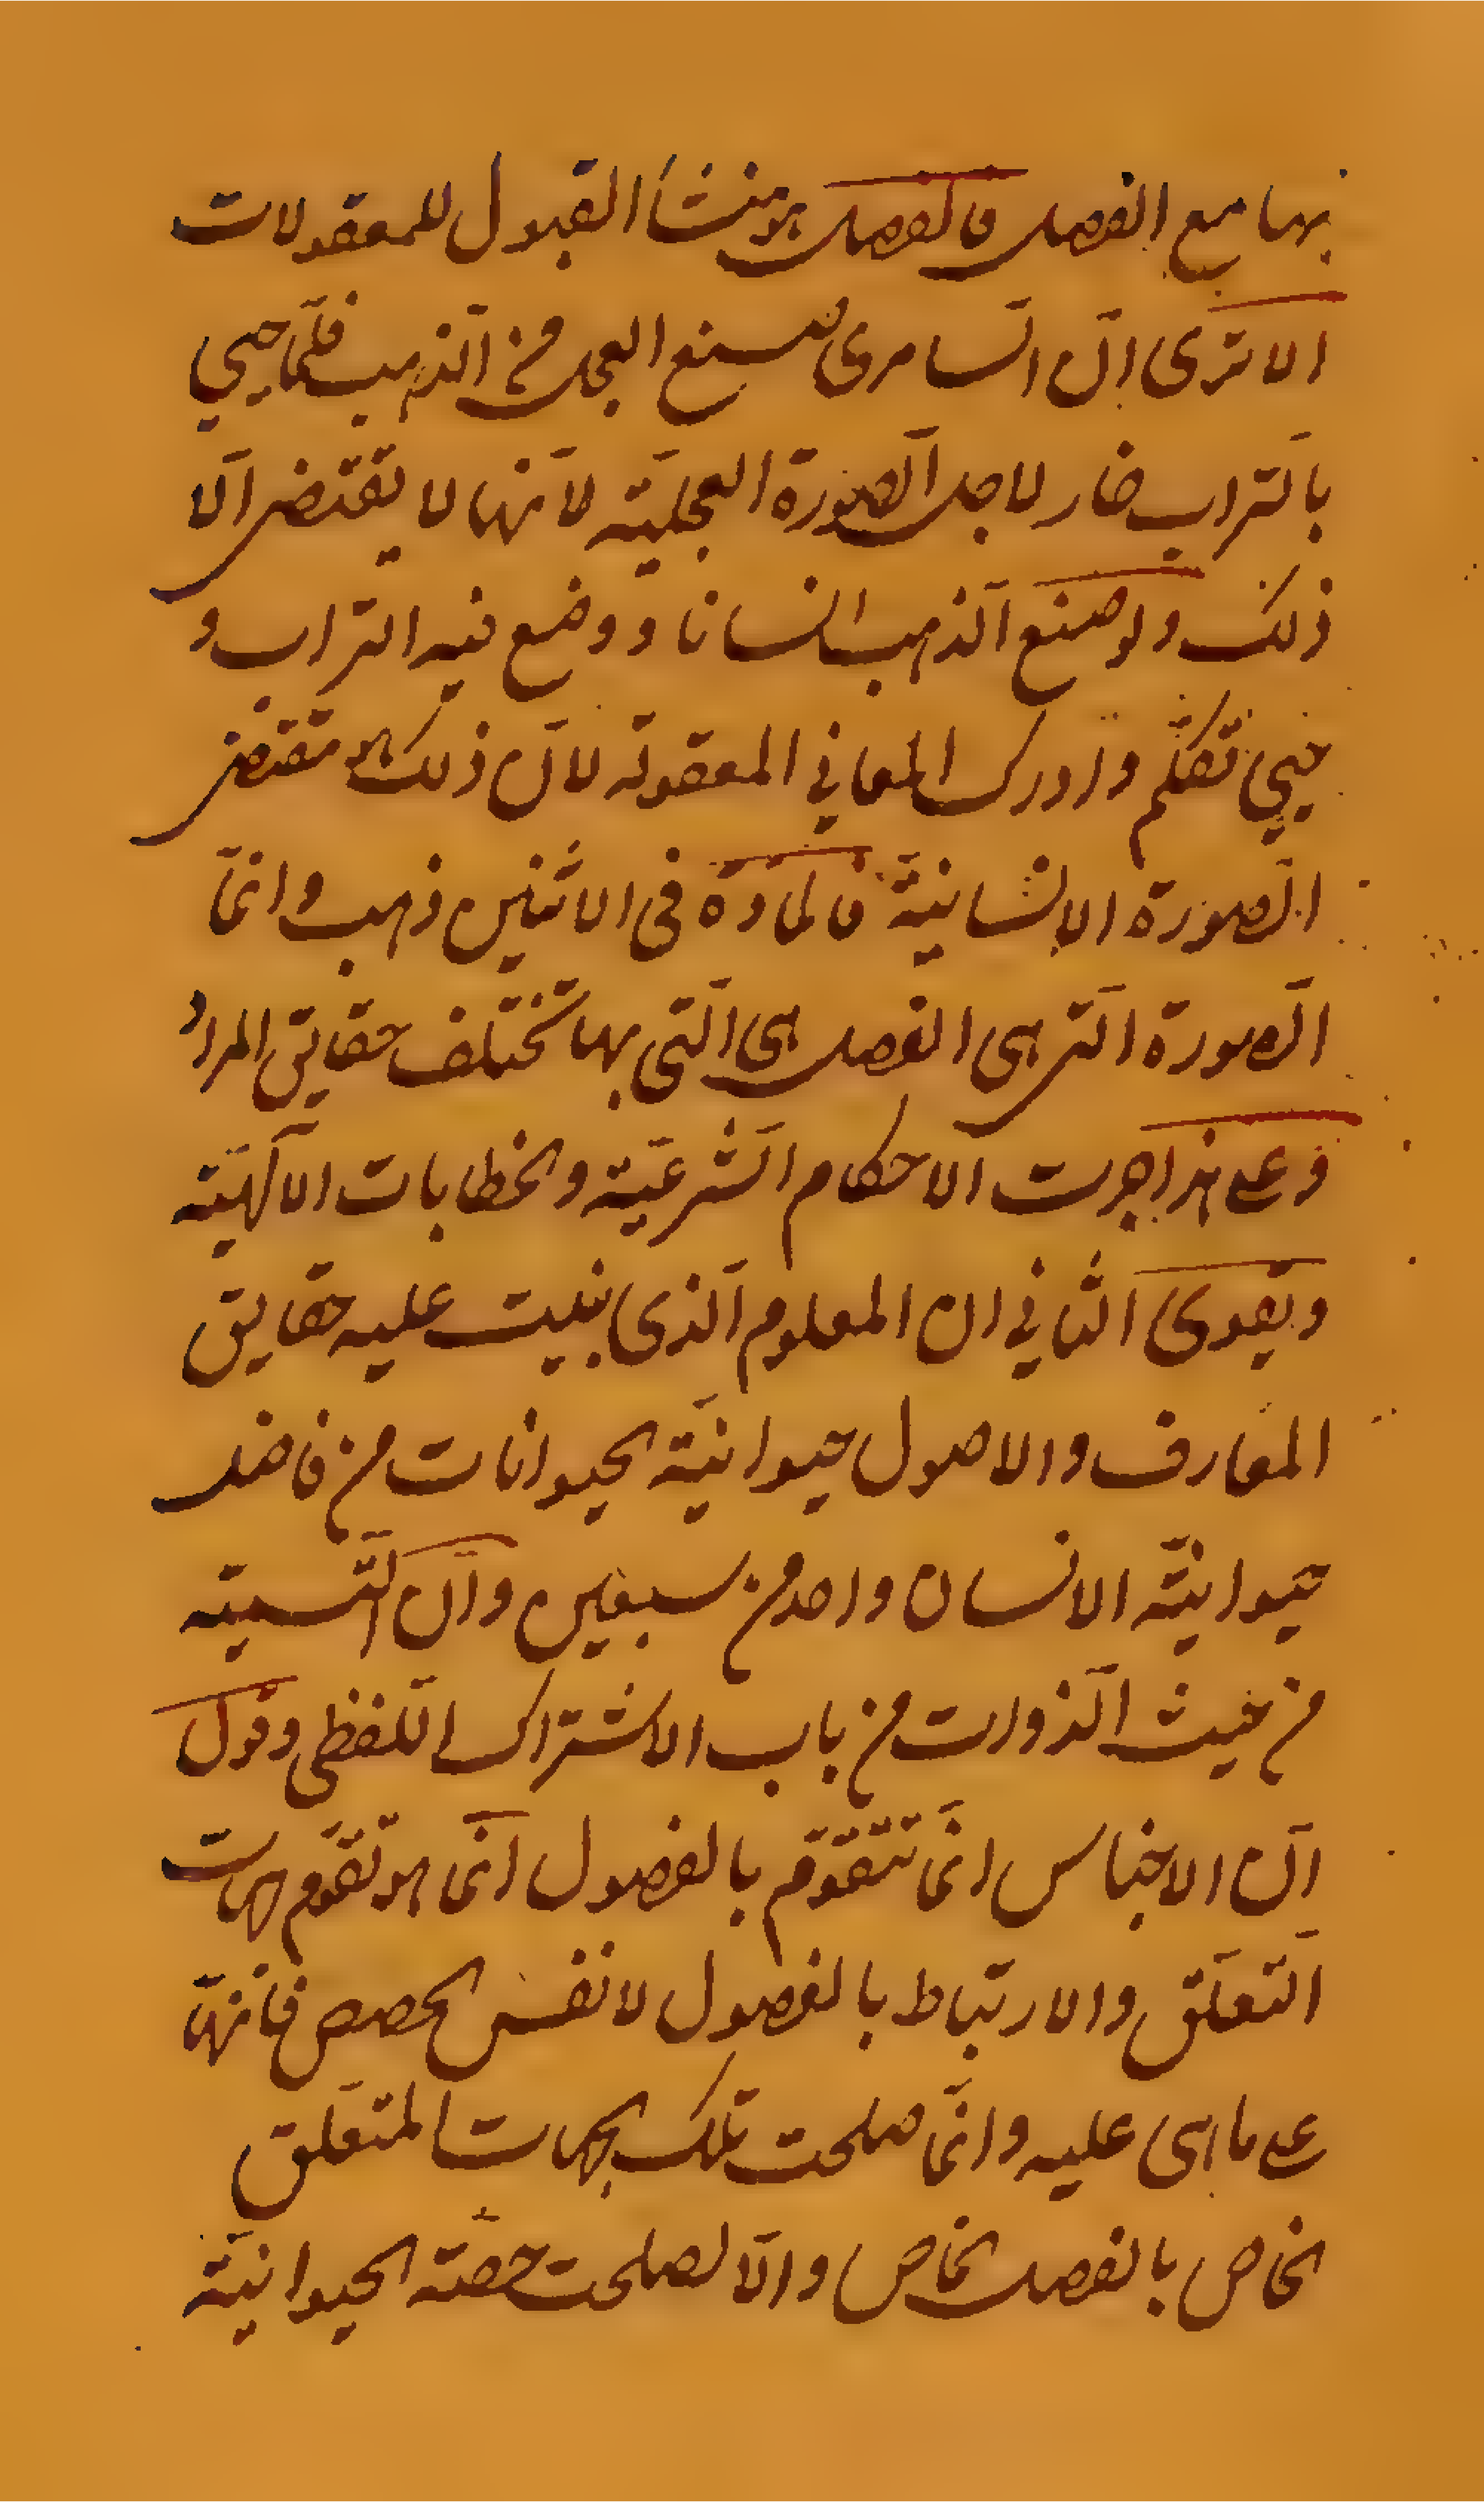 بها مع الفصل فالفصل هو منشأ القبول للمعقولات
الا ترى انّ السّامرى صنع العجل من الذّهب فلمّا حيي
بالتّراب خار لاجل الصّورة العجليّة لانّها لا يقتضى الّا
ذلك ولو صنع الذّهب انسانا و وضع فيه التراب و
حيي تكلّم وادرك المعاني المعقولة لانّ ذلك هو مقتضى
الصّورة الانسانيّة فالمادة فى الاثنين ذهب وانّما
الصّورة الّتى هى الفصل هى الّتى بها تختلف حقايق المراد
وعلى هذا جرت الاحكام الشّرعيّة والخطابات الآلهيّة
ويقوى الثاني ان المعلوم الّذى بنيت عليه حقايق
المعارف والاصول حيوانيّة الحيوانات من فاضل
حيوانيّة الانسان واحد من سبعين وانّ التّسمية
من حيث الذّوات من باب الاشتراك اللّفظى وقول
انّ الاجناس انّما تتقوّم بالفصول انّما هو تقوّم جهات
التّعلّق والارتباط بالفصول لا نفس الحصص فانّها
على ما هى عليه وانّما صلحت تلك الجهات المتعلّق
الخاص بالفصل الخاص والّا لصلحت حصّة الحيوانيّة